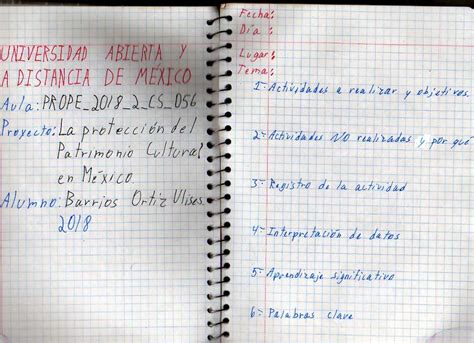 UNIVERSIDAD ABIERTA Y
A DISTANCIA DE MÉXICO
Aula: PROPE_2018_2_CS_056
Proyecto: La protección del
Patrimonio Cultural
en México
Alumno: Barrios Ortiz Ulises
2018
Fecha:
Día:
Lugar:
Tema:
1- Actividades a realizar y objetivos.
2- Actividades NO realizadas y por qué
3- Registro de la actividad
4- Interpretación de datos
5- Aprendizaje significativo
6- Palabras clave